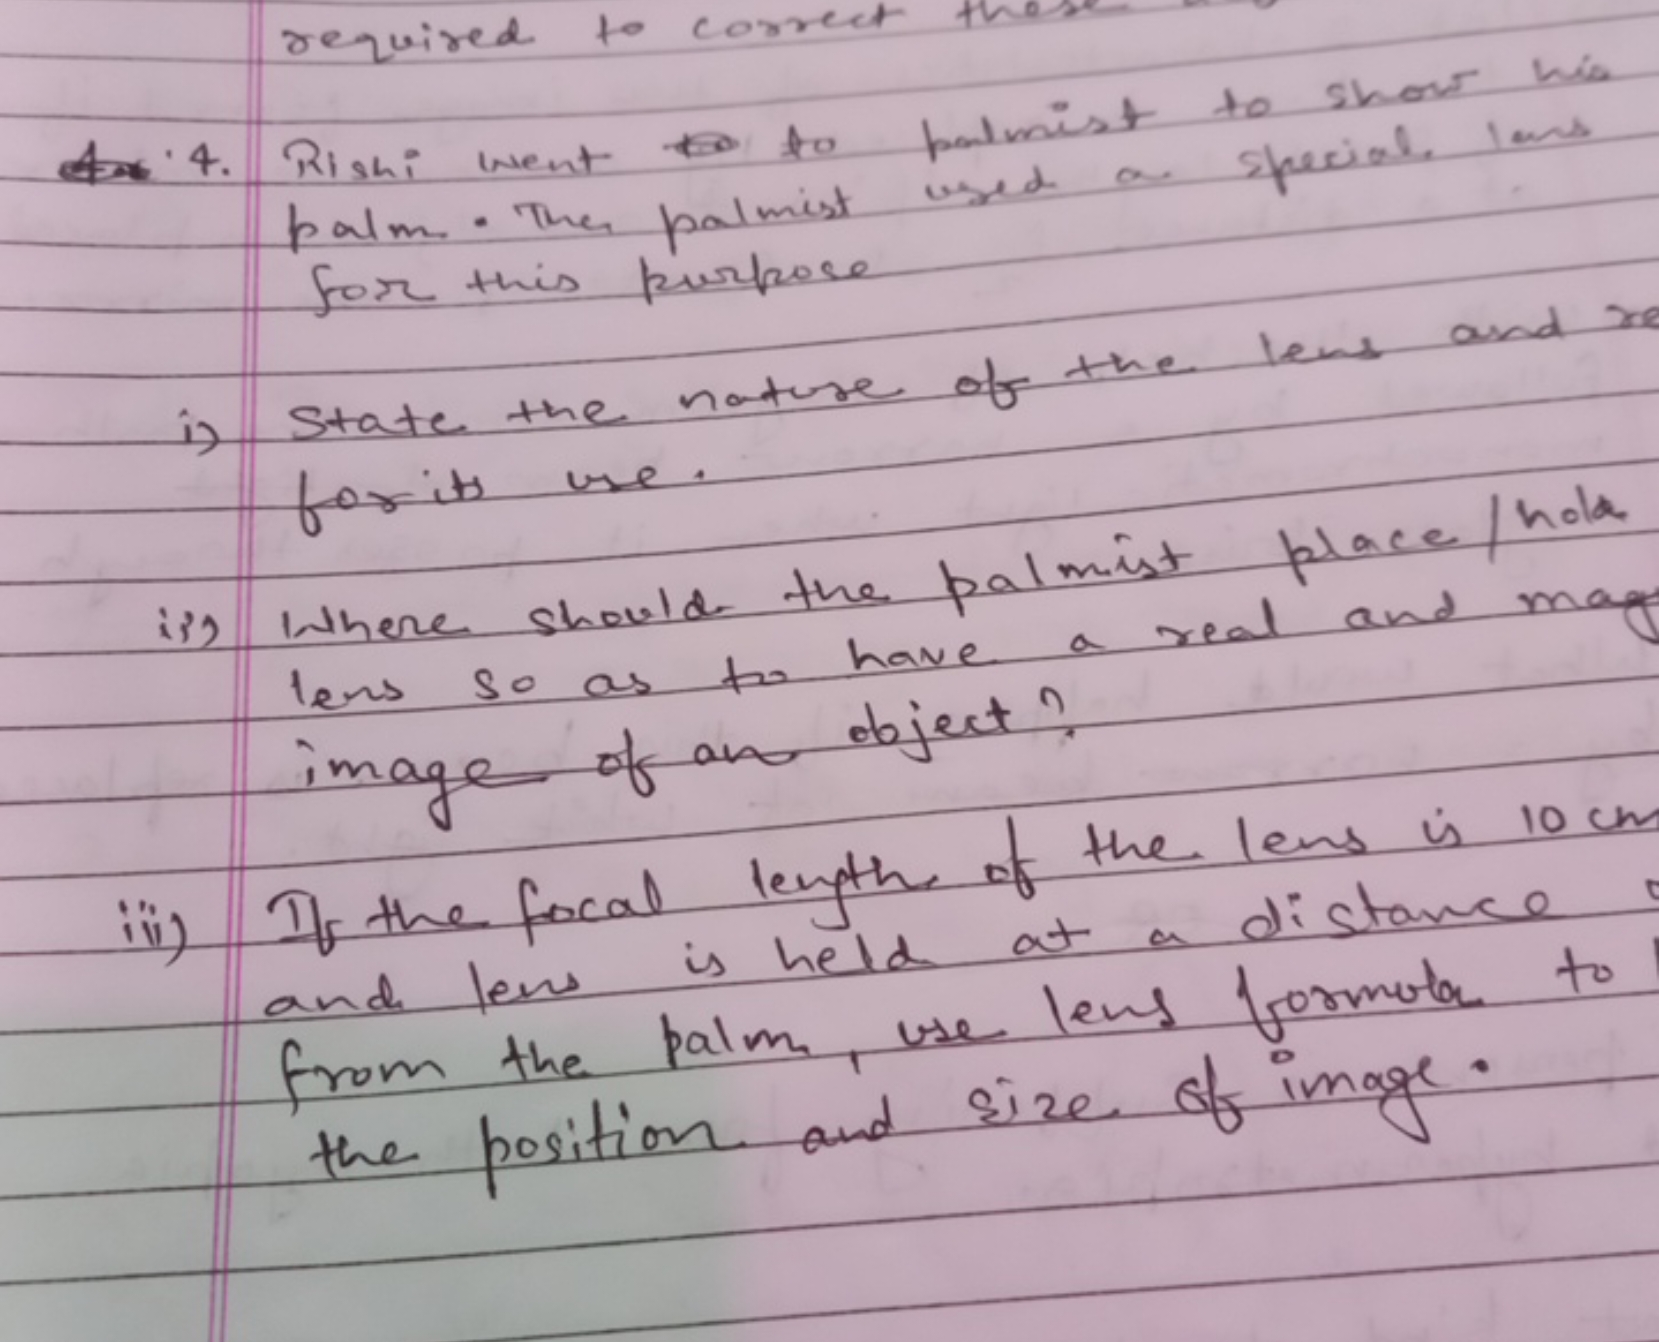 required to correct these
4. Rishi went to palmist to show his
palm. The palmist used a special lens
for this purpose
i) State the nature of the lens and re
for its use.
ii) Where should the palmist place/hold
lens so as to have a real and mag
image of an object?
iii) If the focal length of the lens is 10 cm
and lens is held at a distance
from the palm, use lens formula to
the position and size of image.